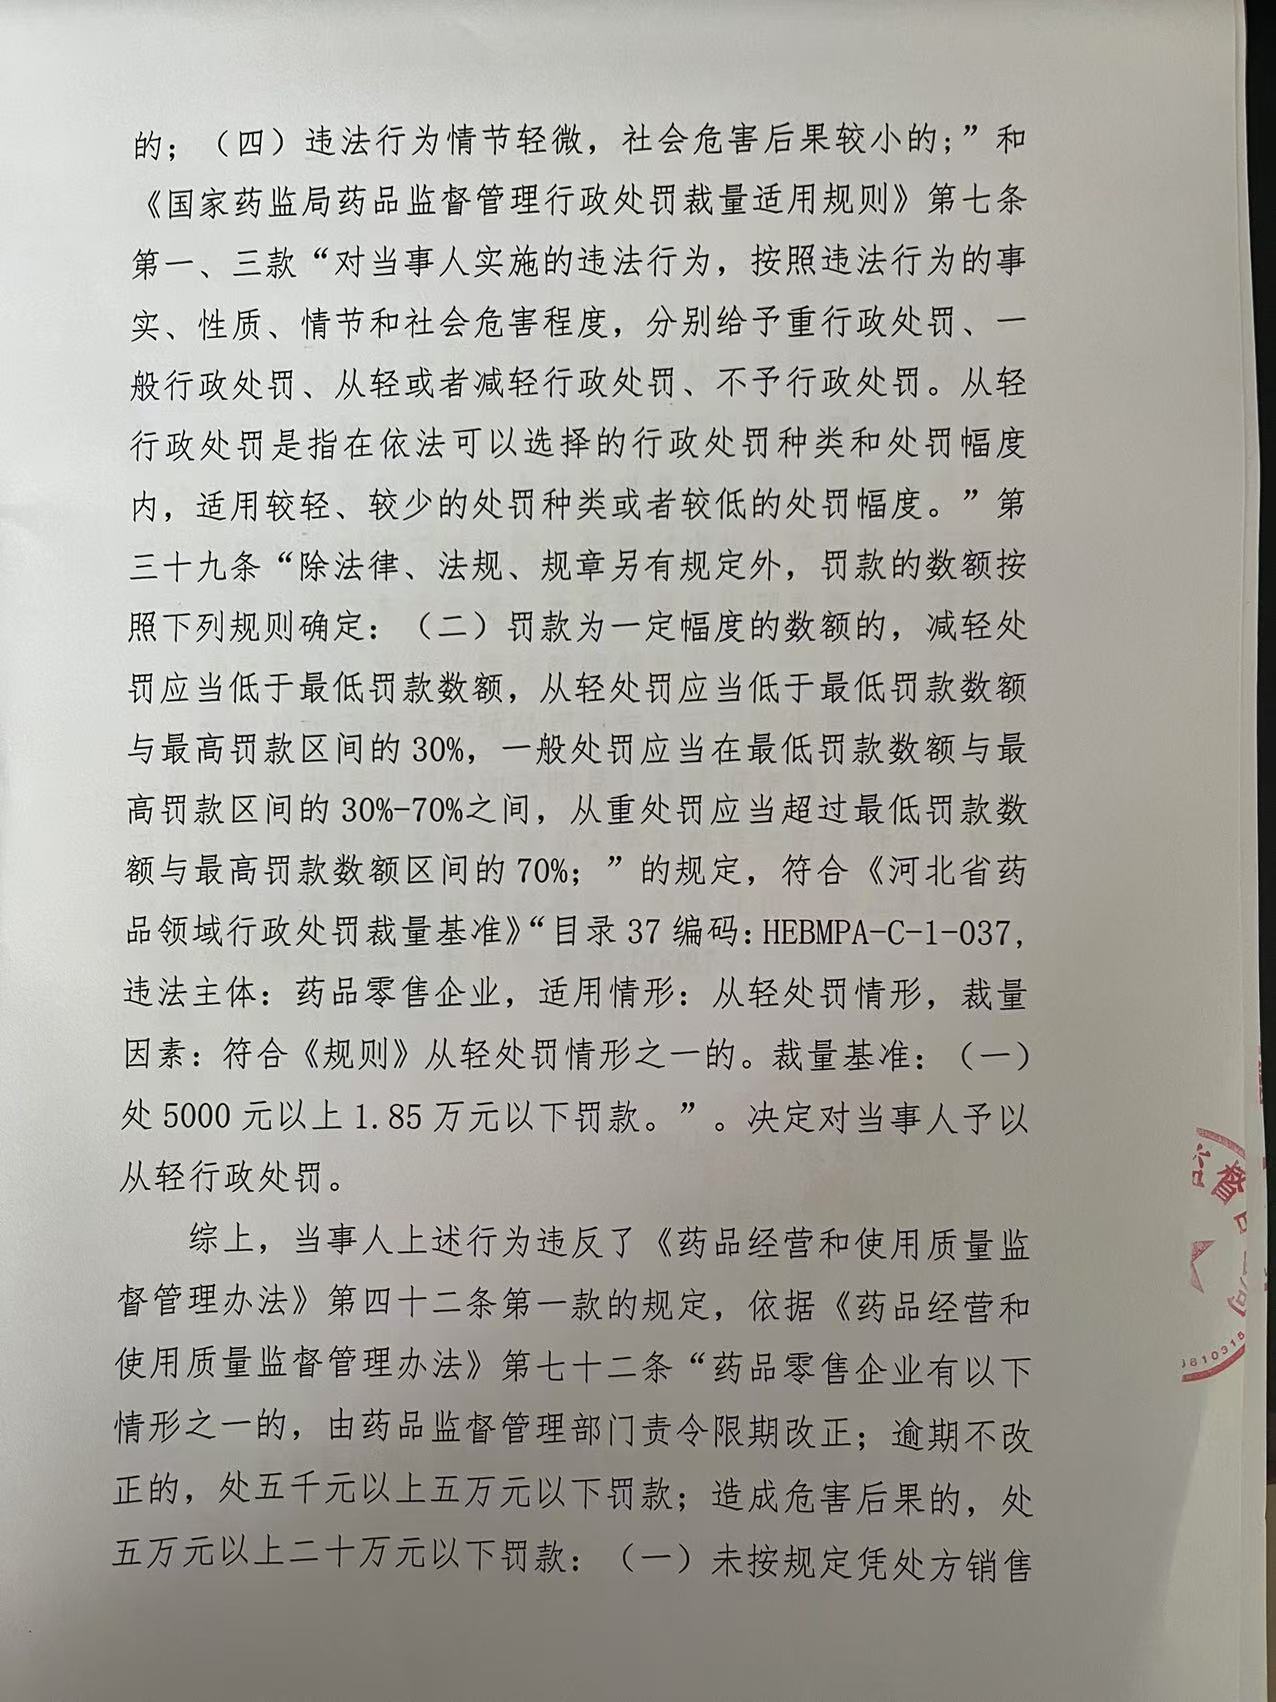 的；（四）违法行为情节轻微，社会危害后果较小的；”和
《国家药监局药品监督管理行政处罚裁量适用规则》第七条
第一、三款“对当事人实施的违法行为，按照违法行为的事
实、性质、情节和社会危害程度，分别给予重行政处罚、一
般行政处罚、从轻或者减轻行政处罚、不予行政处罚。从轻
行政处罚是指在依法可以选择的行政处罚种类和处罚幅度
内，适用较轻、较少的处罚种类或者较低的处罚幅度。”第
三十九条“除法律、法规、规章另有规定外，罚款的数额按
照下列规则确定：（二）罚款为一定幅度的数额的，减轻处
罚应当低于最低罚款数额，从轻处罚应当低于最低罚款数额
与最高罚款区间的30%，一般处罚应当在最低罚款数额与最
高罚款区间的30%-70%之间，从重处罚应当超过最低罚款数
额与最高罚款数额区间的70%；”的规定，符合《河北省药
品领域行政处罚裁量基准》“目录37编码：HEBMPA-C-1-037，
违法主体：药品零售企业，适用情形：从轻处罚情形，裁量
因素：符合《规则》从轻处罚情形之一的。裁量基准：（一）
处5000元以上1.85万元以下罚款。”。决定对当事人予以
从轻行政处罚。
综上，当事人上述行为违反了《药品经营和使用质量监
督管理办法》第四十二条第一款的规定，依据《药品经营和
使用质量监督管理办法》第七十二条“药品零售企业有以下
情形之一的，由药品监督管理部门责令限期改正；逾期不改
正的，处五千元以上五万元以下罚款；造成危害后果的，处
五万元以上二十万元以下罚款：（一）未按规定凭处方销售
督
810315